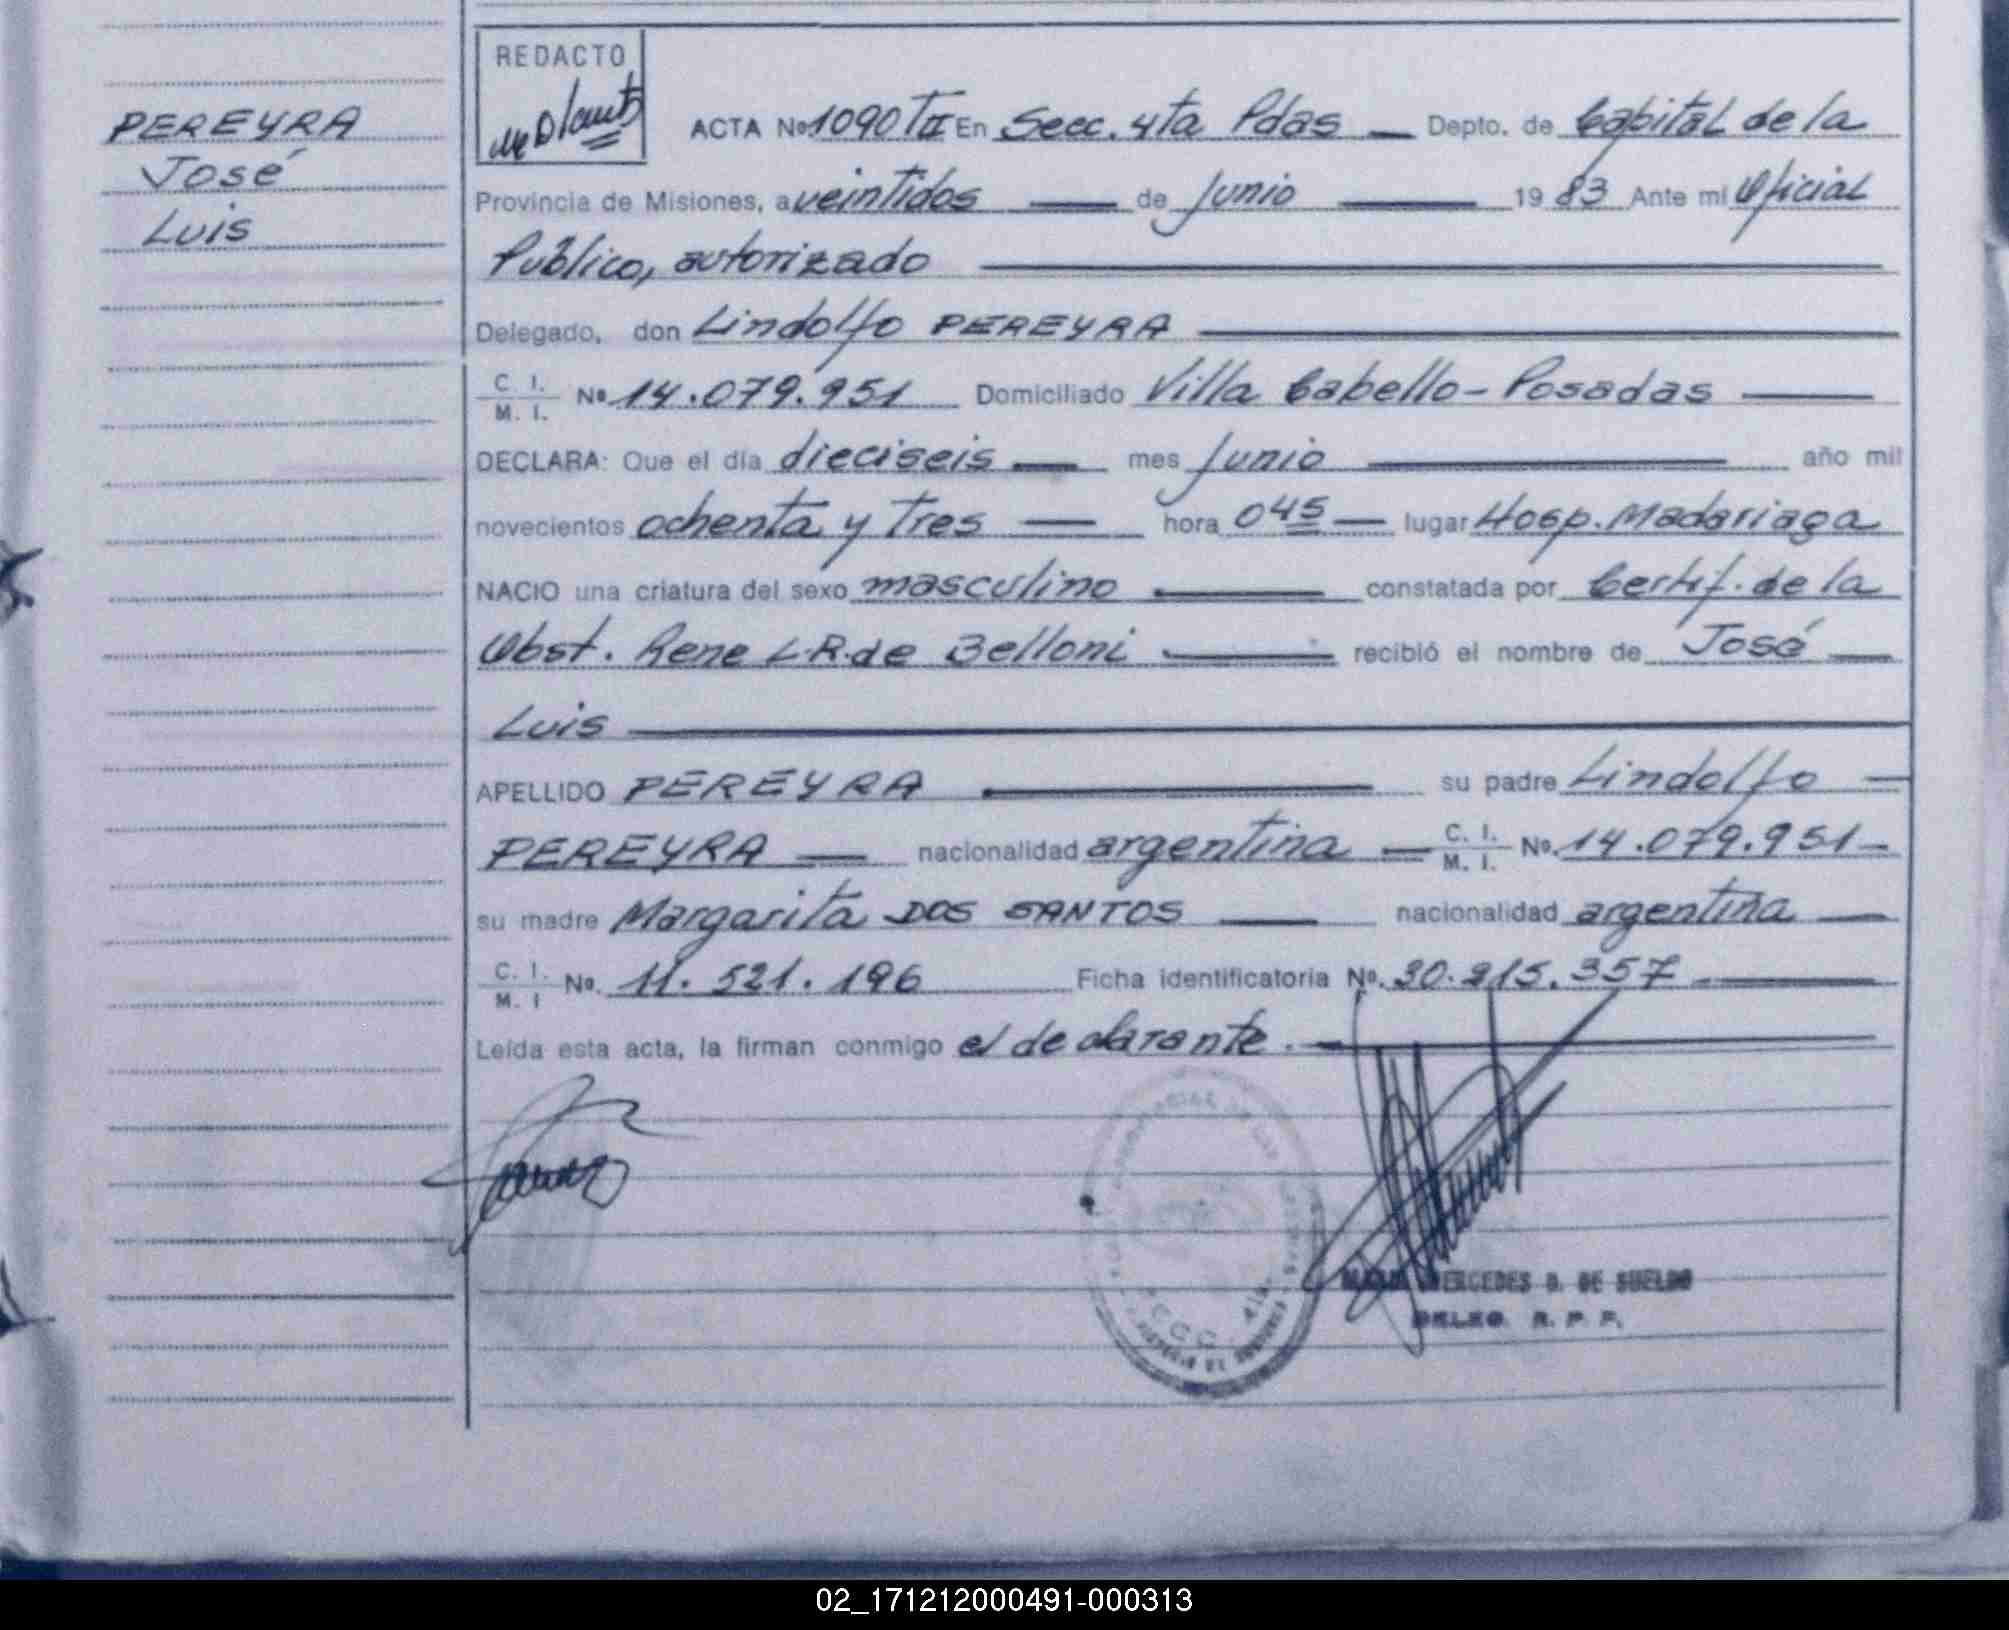 PEREYRA
José
Luis
REDACTO
ACTA Nº 1090 TII En Secc. 4ta Pdas Depto. de Capital de la
Provincia de Misiones, a veintidos de Junio 1983 Ante mi Oficial
Público, autorizado
Delegado, don Lindolfo PEREYRA
C. I.
M. I. Nº 14.079.951 Domiciliado Villa Cabello - Posadas
DECLARA: Que el día dieciseis mes Junio año mil
novecientos ochenta y tres hora 045 lugar Hosp. Madariaga
NACIO una criatura del sexo masculino constatada por Certif. de la
Obst. Rene L.R. de Belloni recibió el nombre de José
Luis
APELLIDO PEREYRA su padre Lindolfo
PEREYRA nacionalidad argentina C. I. M. I. Nº. 14.079.951
su madre Margarita DOS SANTOS nacionalidad argentina
C. I.
M. I Nº. 11.521.196 Ficha identificatoria Nº. 30.215.357
Leída esta acta, la firman conmigo el declarante.
MERCEDES D. DE SUELDO
DELEG. R. P. P.
02_171212000491-000313